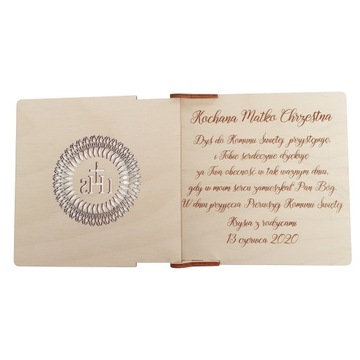 IHS
Kochana Matko Chrzestna
Dziś do Komunii Świętej przystępuję
i Tobie serdecznie dziękuję
za Twą obecność w tak ważnym dniu,
gdy w moim sercu zamieszkał Pan Bóg.
W dniu przyjęcia Pierwszej Komunii Świętej
Krysia z rodzicami
13 czerwca 2020